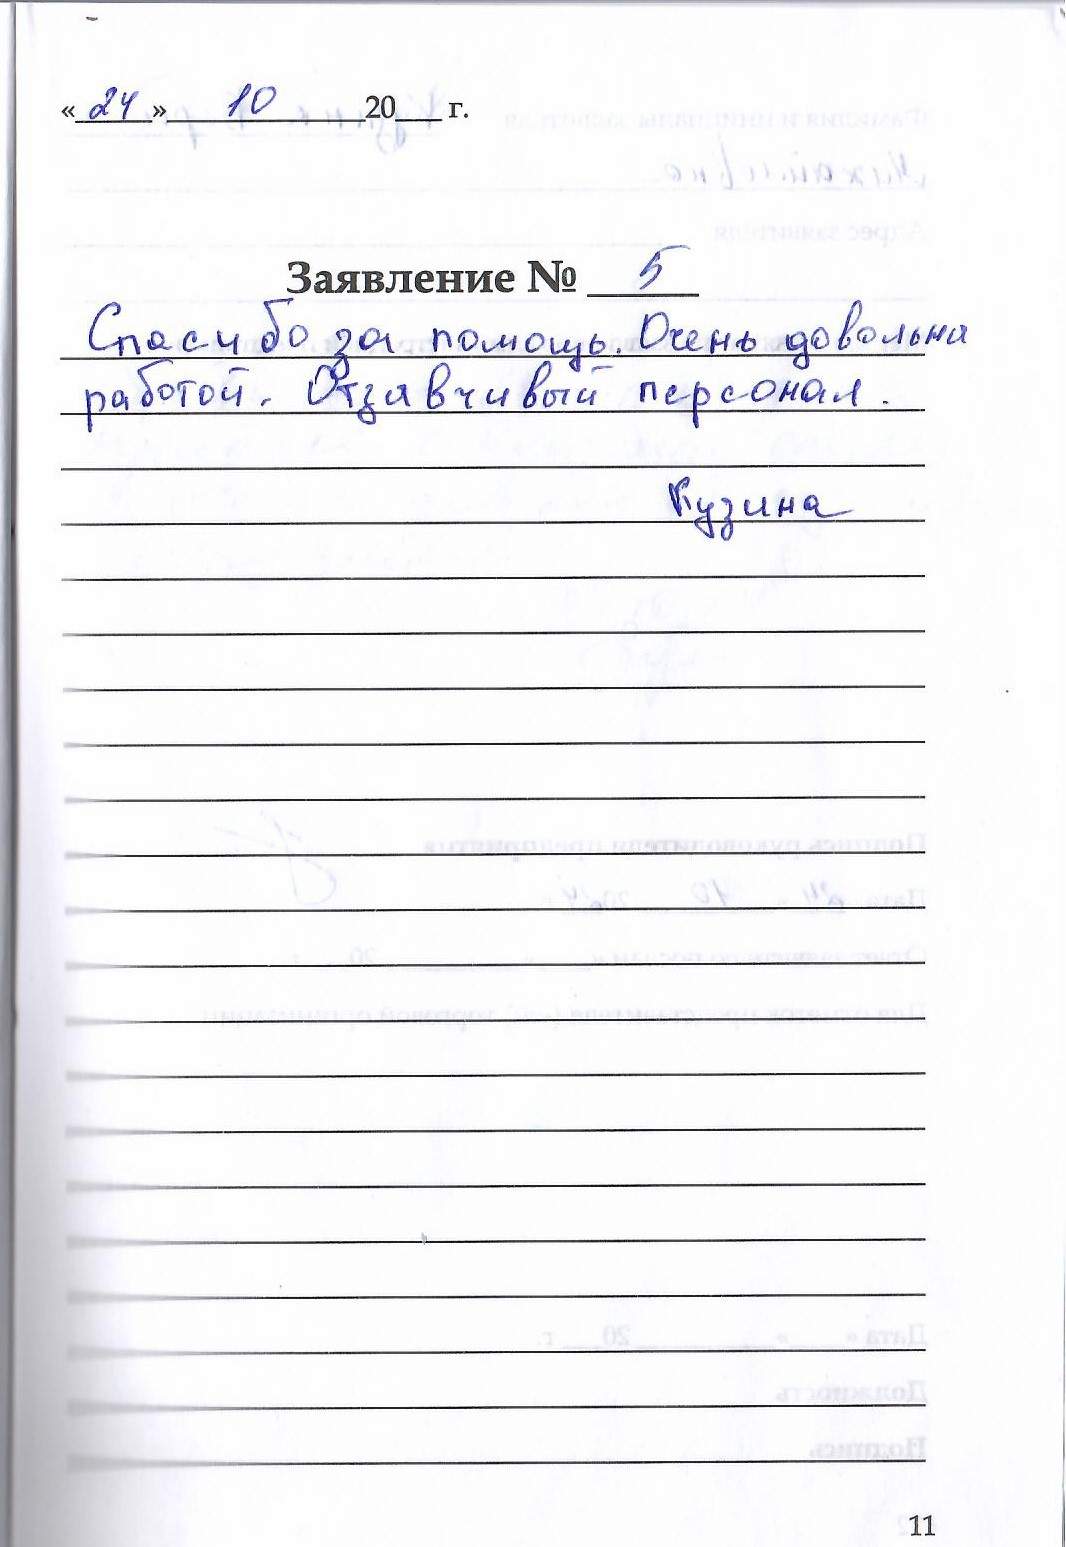 «24» 10 20 г.
Заявление № 5
Спасибо за помощь. Очень довольна
работой. Отзявчивый персонал.
Кузина
11